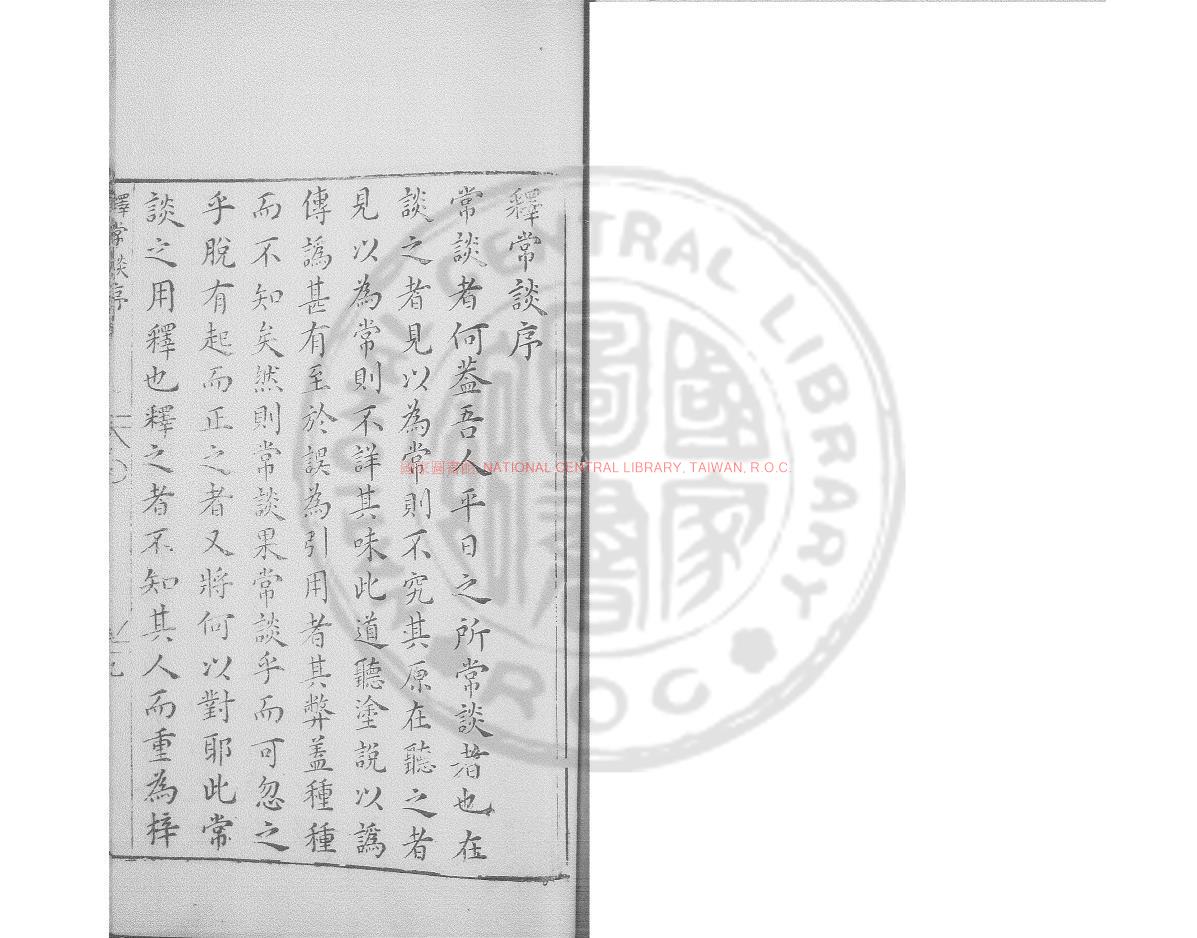 釋常談序
常談者何葢吾人平日之所常談者也在
談之者見以為常則不究其原在聽之者
見以為常則不詳其味此道聽塗說以譌
傳譌甚有至於誤為引用者其弊蓋種種
而不知矣然則常談果常談乎而可忽之
乎脫有起而正之者又將何以對耶此常
談之用釋也釋之者不知其人而重為梓
釋常談序
國家圖書館 NATIONAL CENTRAL LIBRARY, TAIWAN, R.O.C.
NATIONAL CENTRAL LIBRARY
R.O.C.
國家圖書館